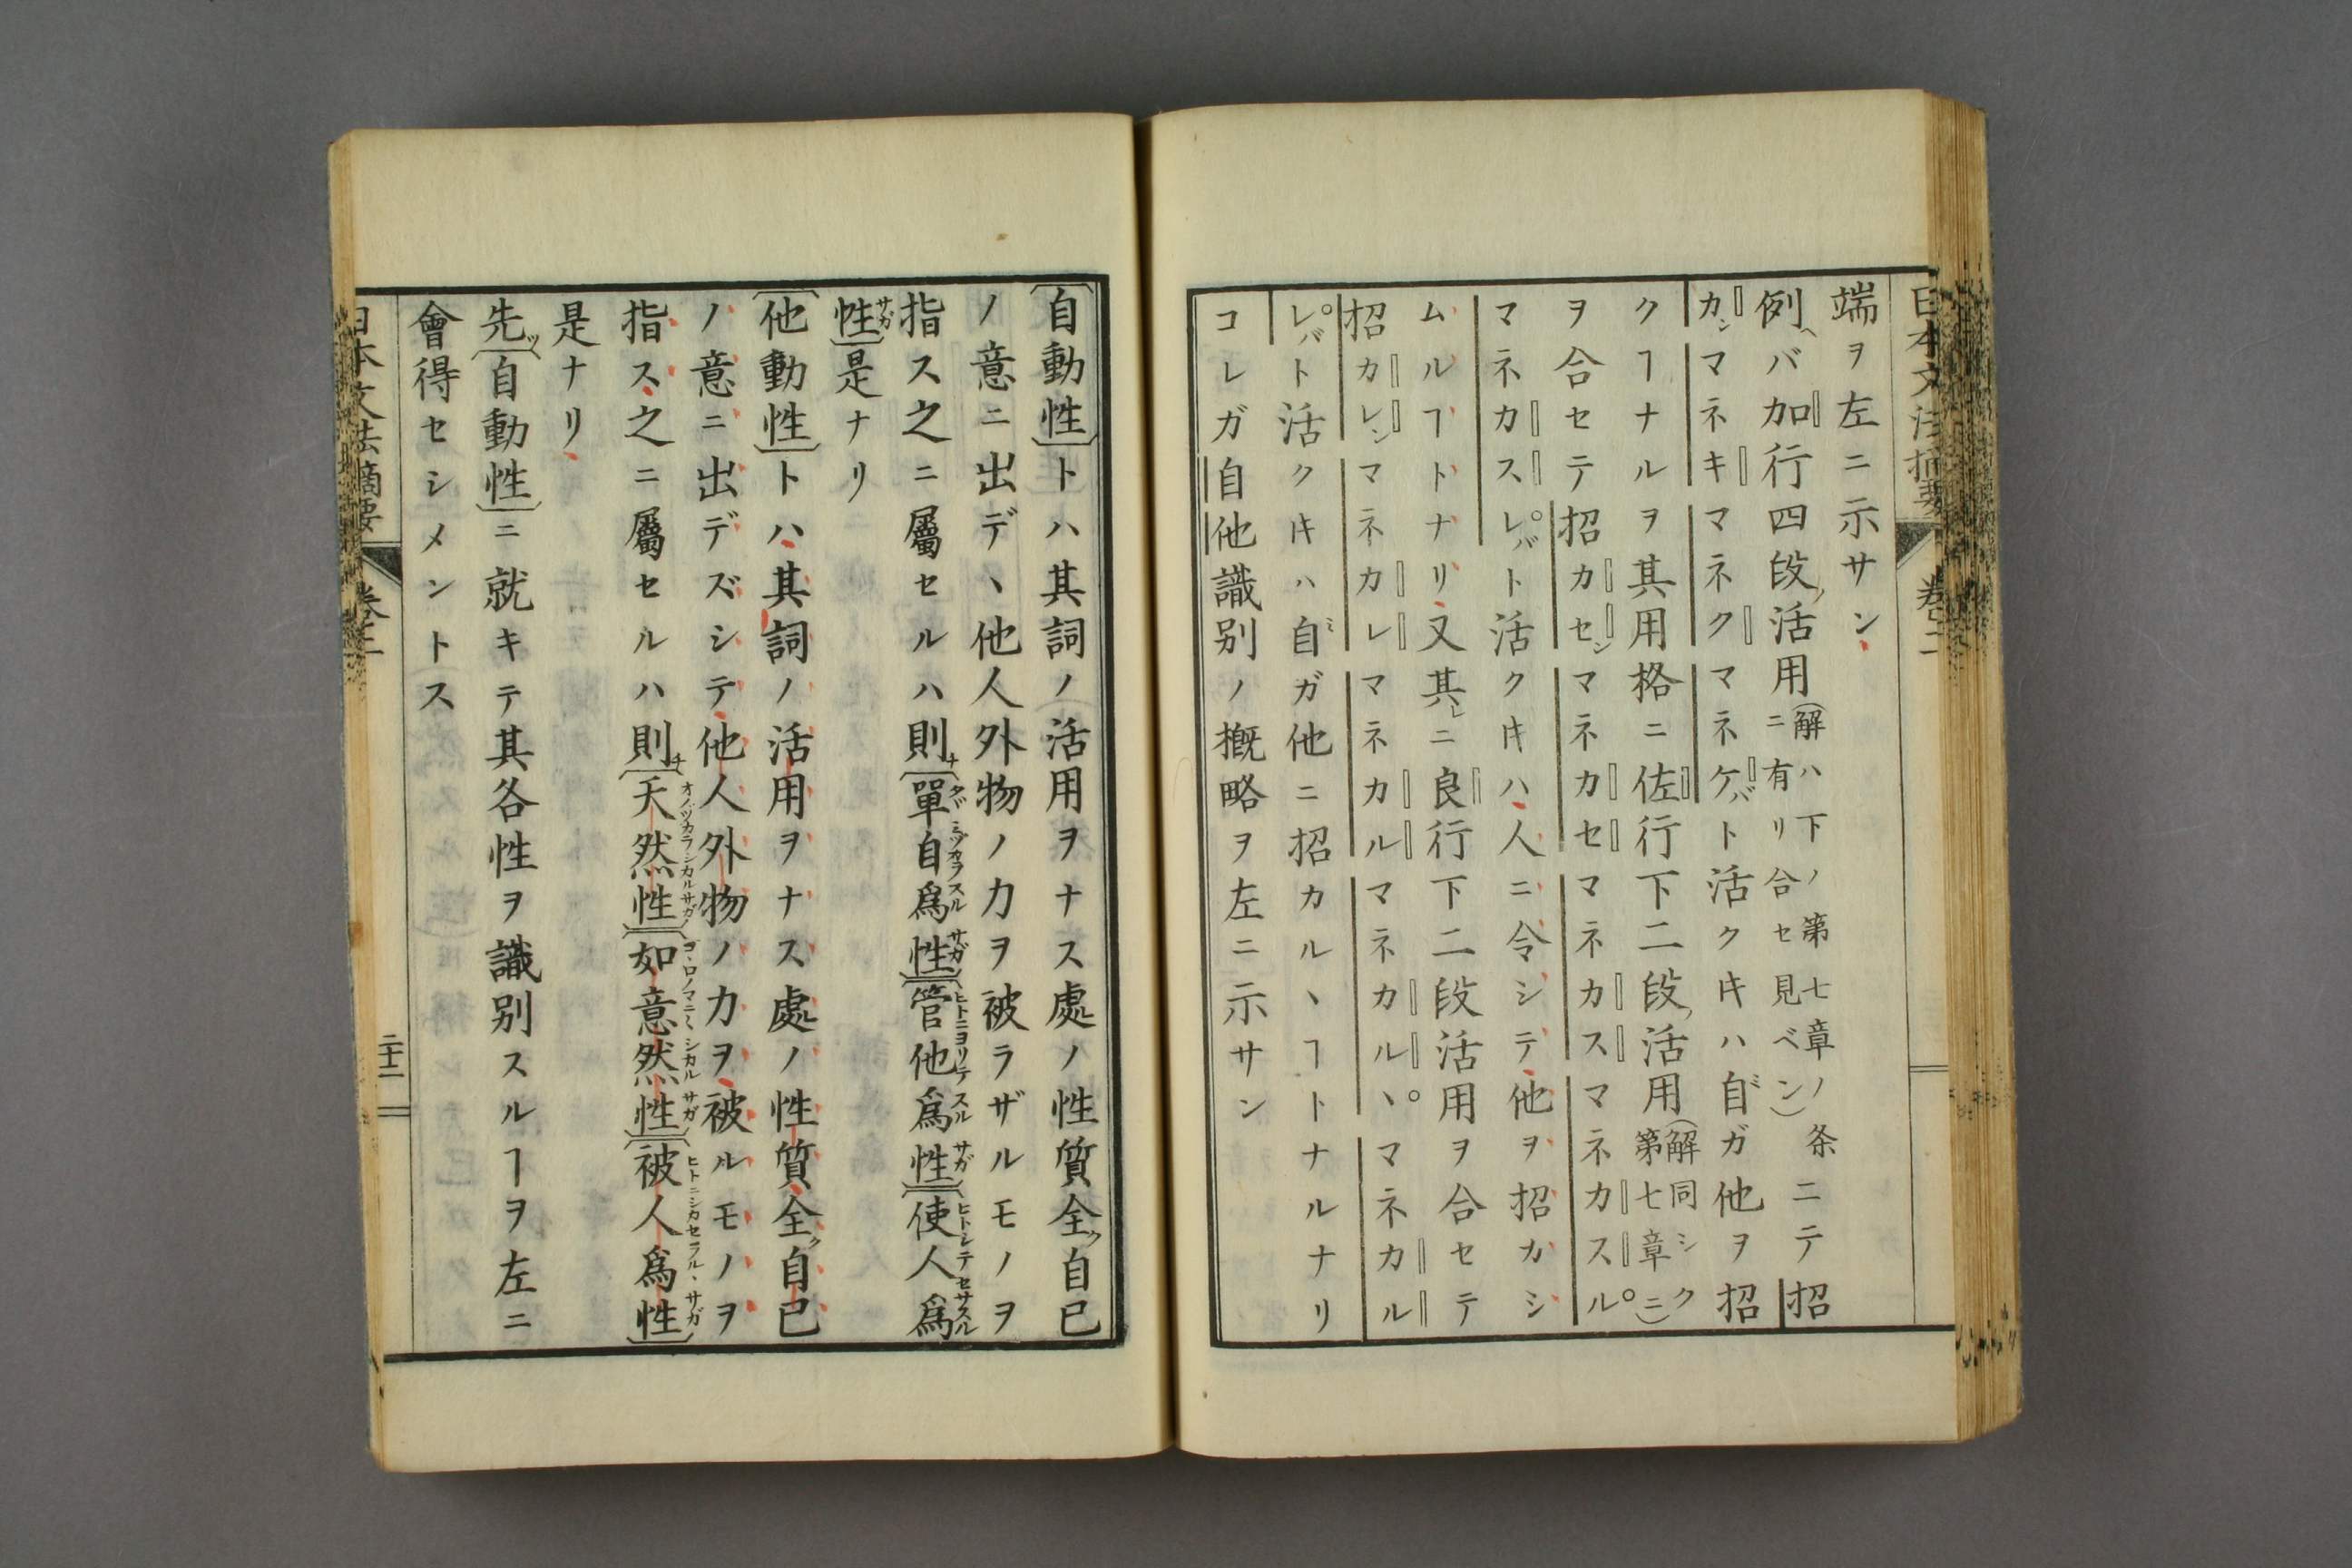 端ヲ左ニ示サン、
例ヘバ加行四段ノ活用ニ(解ハ下ノ第七章ノ条ニテ有リ合セ見ベシ)招
カンマネキマネクマネケバト活クキハ自ガ他ヲ招
クヿナルヲ其用格ニ佐行下二段ノ活用(解同シク第七章ニ)
ヲ合セテ招カセンマネカセマネカスマネカスル
マネカスレバト活クキハ、人ニ令シテ、他ヲ招カシ
ムルヿトナリ、又其レニ良行下二段活用ヲ合セテ
招カレンマネカレマネカルマネカルヽマネカル
レバト活クキハ自ガ他ニ招カルヽヿトナルナリ
コレガ自他識別ノ概略ヲ左ニ示サン
自動性トハ其詞ノ活用ヲナス處ノ性質全ク自己
ノ意ニ出デヽ他人外物ノ力ヲ被ラザルモノヲ
指ス之ニ屬セルハ則チ單自爲性管他爲性使人爲
性是ナリ
他動性トハ、其詞ノ活用ヲナス處ノ性質、全ク自己
ノ意ニ出デズシテ、他人外物ノ力ヲ、被ルモノヲ
指ス、之ニ屬セルハ則チ天然性如意然性被人爲性
是ナリ、
先ツ自動性ニ就キテ其各性ヲ識別スルヿヲ左ニ
會得セシメントス
日本文法摘要
卷二
二十二